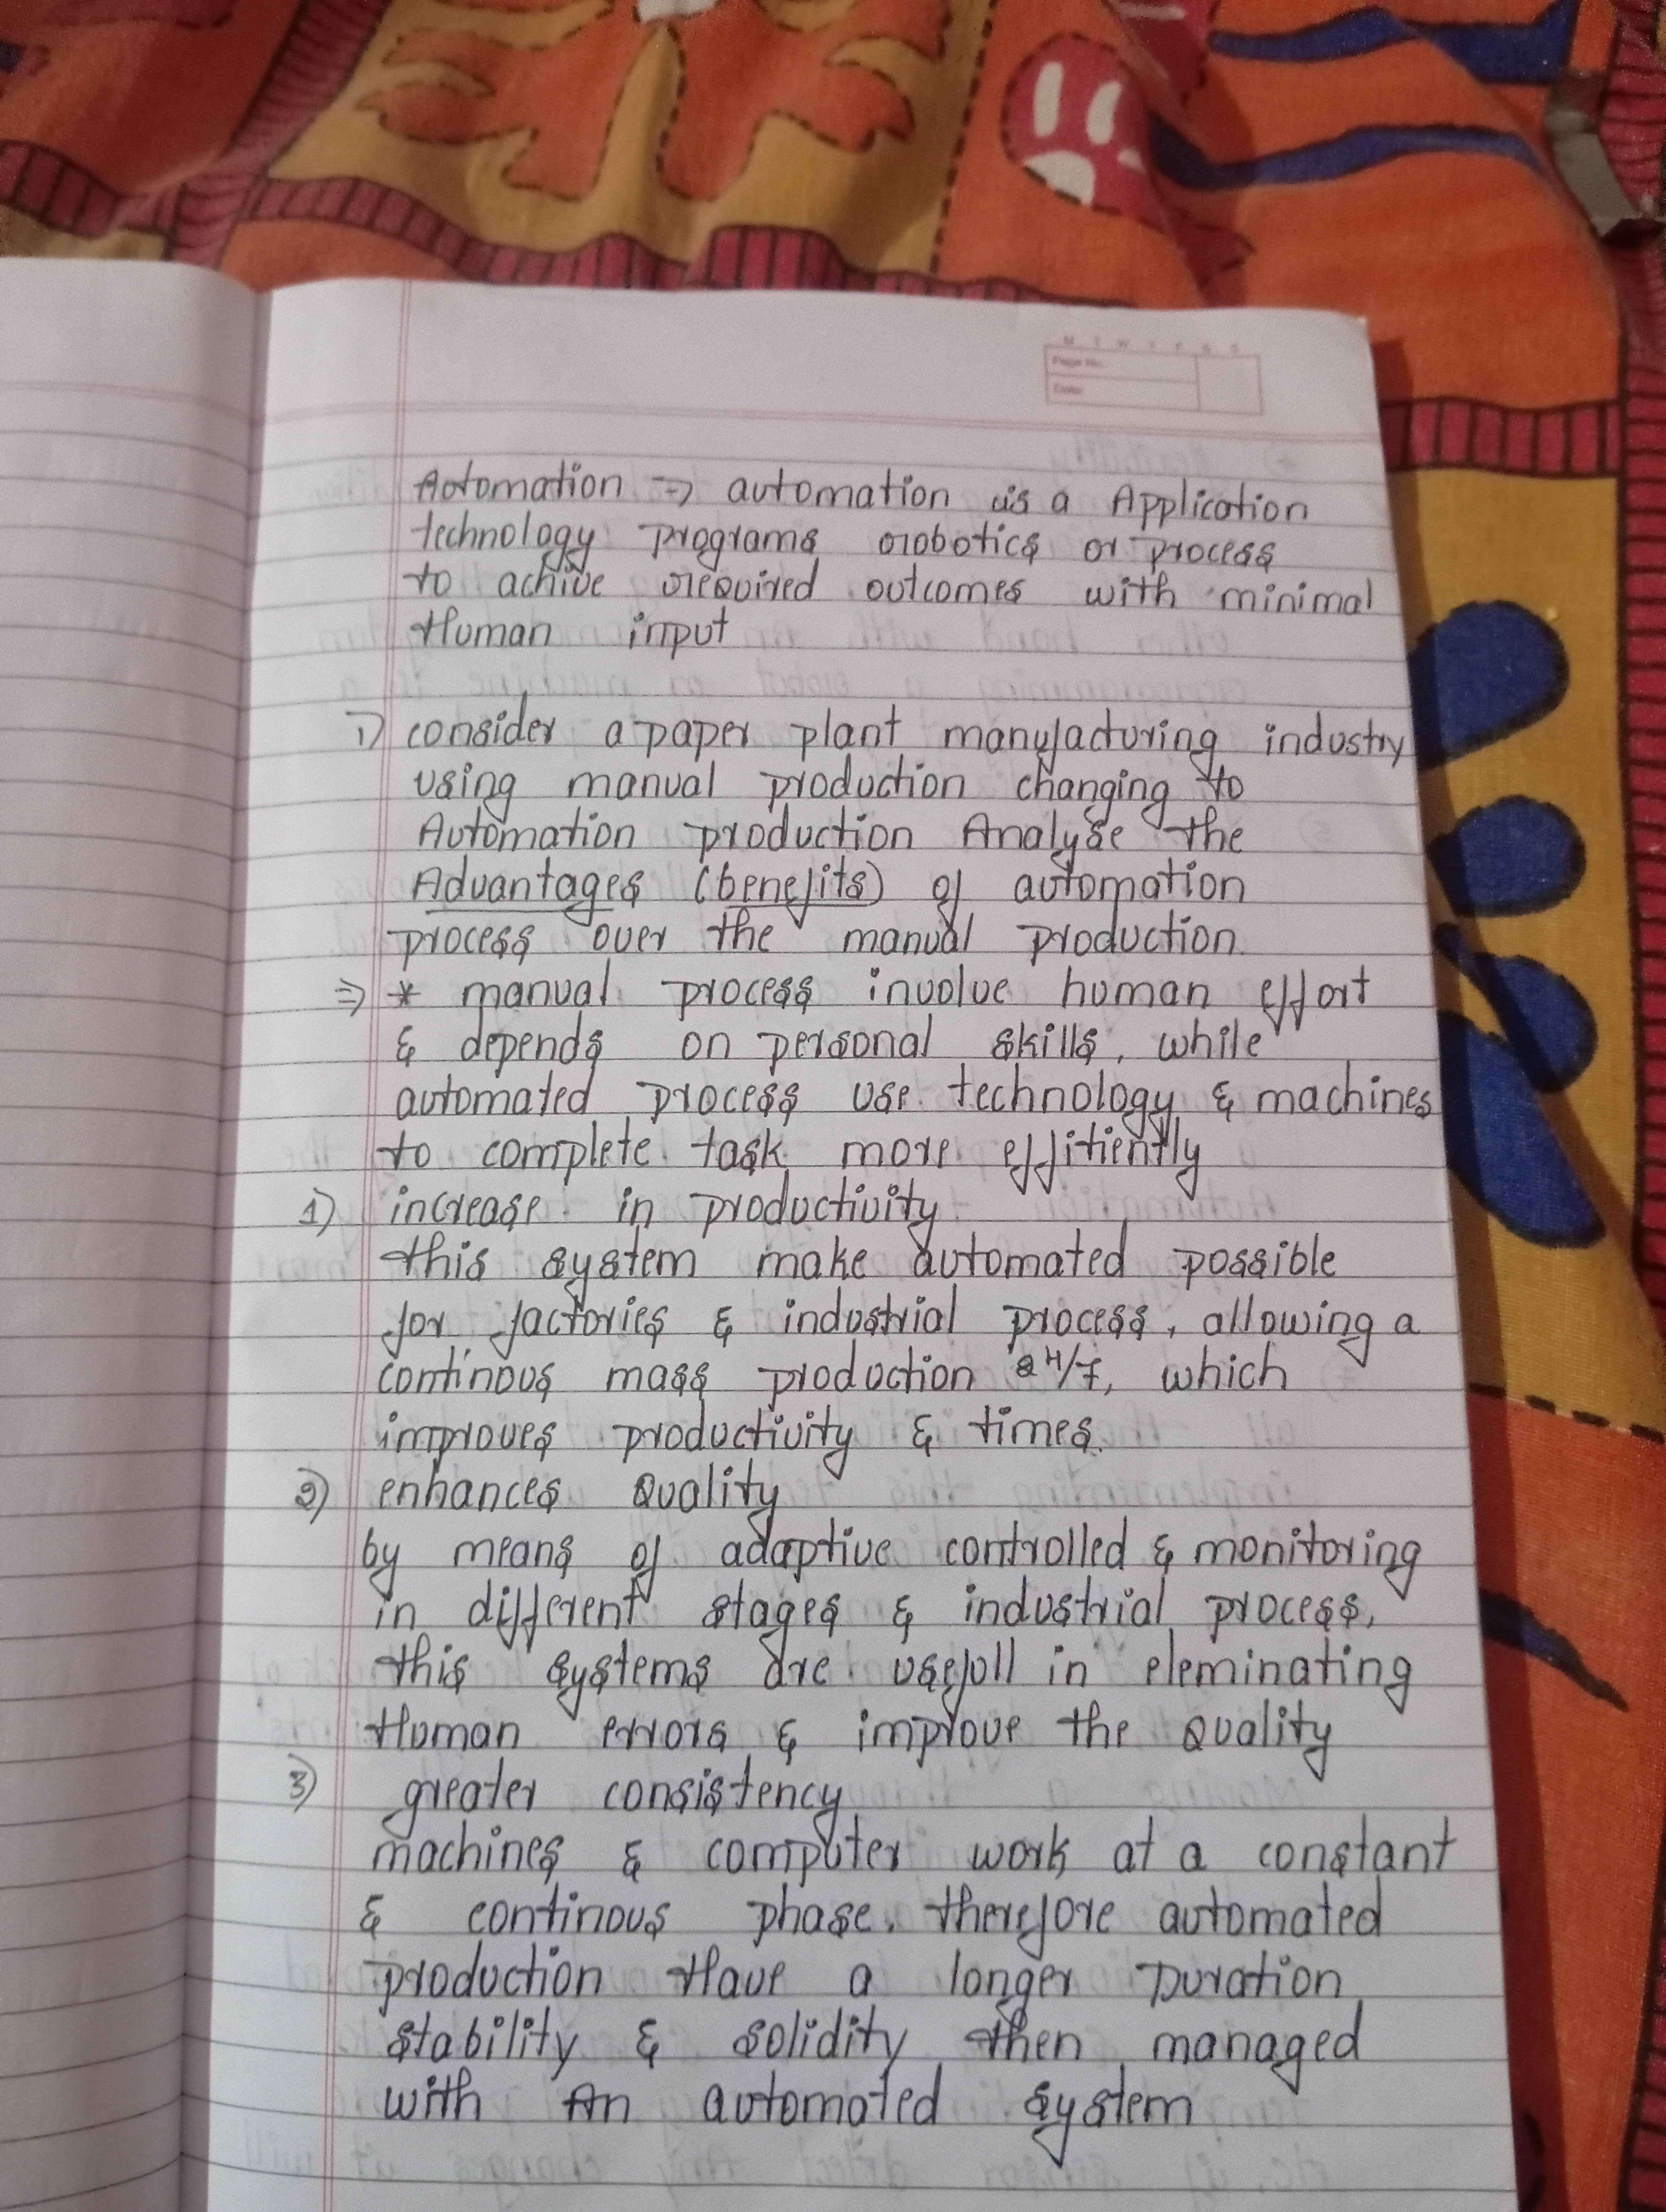 M T W T F S S
Page No.:
Date:
Automation => automation is a Application
technology programs robotics or process
to achive required outcomes with minimal
Human input
1) consider a paper plant manufacturing industry
using manual production changing to
Automation production Analyse the
Advantages (benefits) of automation
process over the manual production.
=> * manual process involve human effort
& depends on personal skills, while
automated process use technology & machines
to complete task more effitiently
1) increase in productivity
this system make automated possible
for factories & industrial process, allowing a
continous mass production 24/7, which
improves productivity & times.
2) enhances Quality
by means of adaptive controlled & monitoring
in different stages & industrial process,
this systems are usefull in eleminating
Human errors & improve the Quality
3) greater consistency
machines & computer work at a constant
& continous phase. therefore automated
production Have a longer Duration
stability & solidity then managed
with An automated system